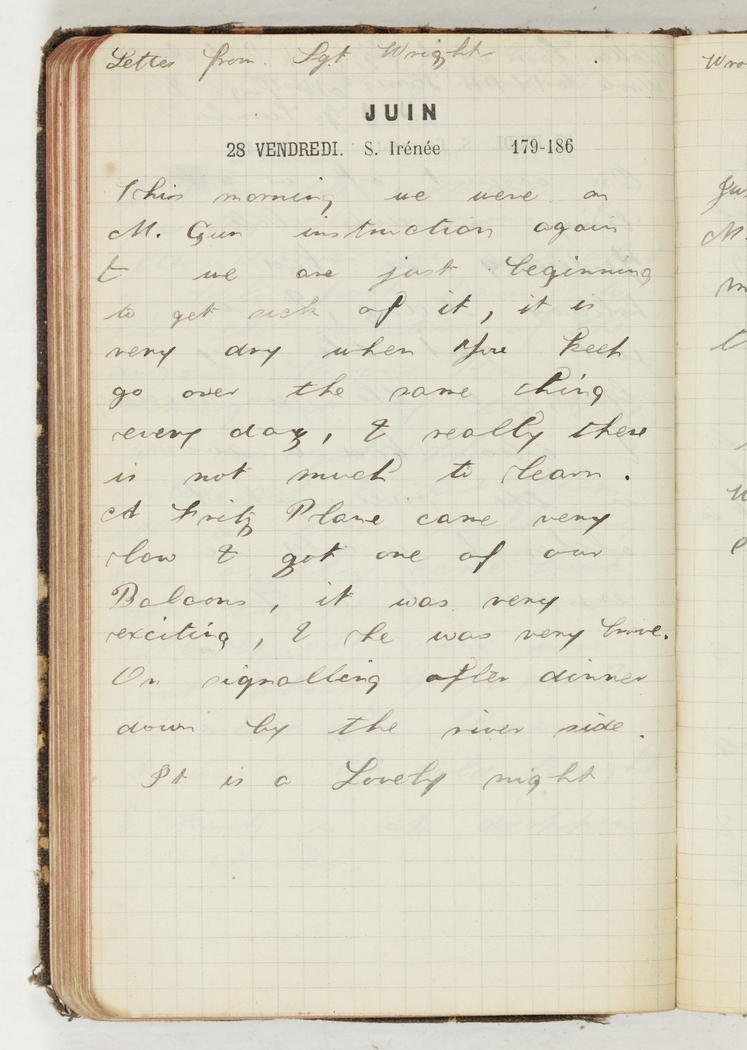 Letter from Sgt Wright
JUIN
28 VENDREDI. S. Irénée 179-186
This morning we were on
M. Gun instruction again
& we are just beginning
to get sick of it, it is
very dry when you keep
go over the same thing
every day, & really there
is not much to learn.
A Fritz Plane came very
low & got one of our
Baloons, it was very
exciting, & he was very brave.
On signalling after dinner
down by the river side.
It is a Lovely night